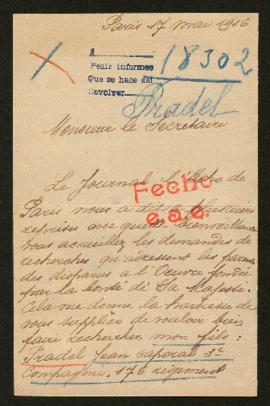 Paris 17 mai 1916
A
Pedir informes
Que se hace del
Devolver
18302
Pradel
Monsieur le Secrétaire
Le Journal l'Echo de
Fecho
Paris nous a plusieurs
e.a.c.
reprises avec quelle bienveillance
vous accueillez les demandes de
recherches qu'adressent les parents
des disparus à l'Œuvre fondée
par la bonté de Sa Majesté.
Cela me donne la hardiesse de
vous supplier de vouloir bien
faire rechercher mon fils :
Pradel Jean Caporal 3e
Compagnie. 176 régiment